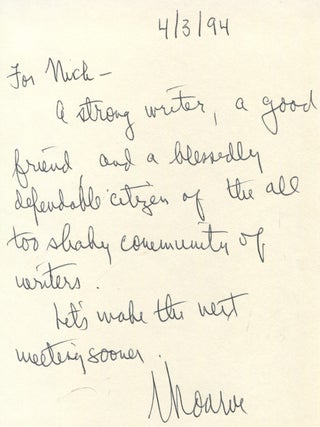 4/3/94
For Nick—
A strong writer, a good
friend, and a blessedly
dependable citizen of the all
too shaky community of
writers.
Let's make the next
meeting sooner.